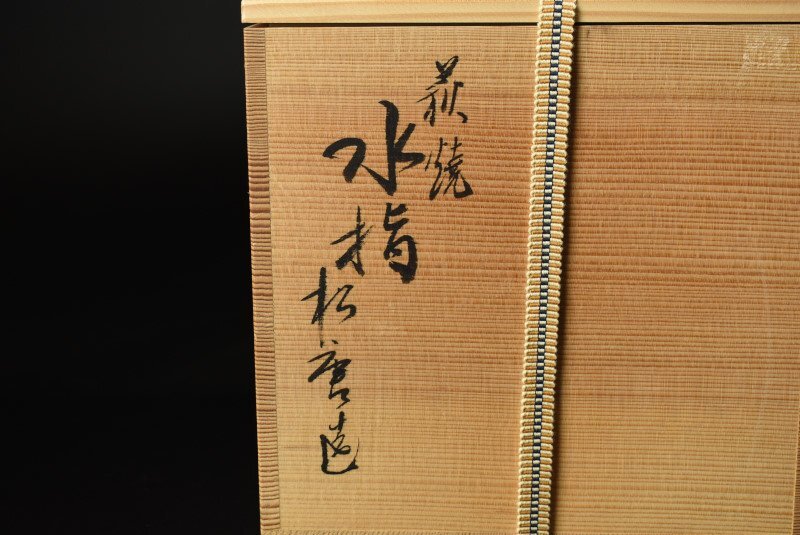 萩焼
水指
松庵造